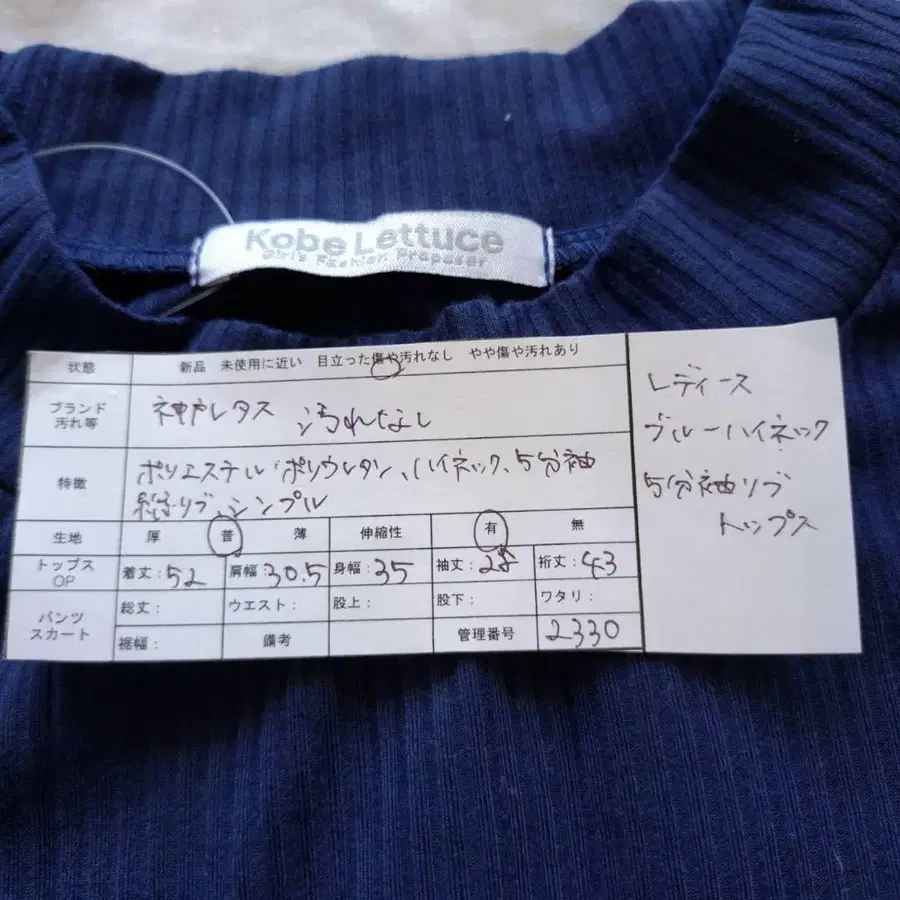 Kobe Lettuce
Girl's Fashion Proposer
状態 新品 未使用に近い 目立った傷や汚れなし やや傷や汚れあり
ブランド 汚れ等 神戸レタス 汚れなし
特徴 ポリエステル ポリウレタン、ハイネック、5分袖
リブ、シンプル
生地 厚 普 薄 伸縮性 有 無
トップス OP 着丈:52 肩幅:30.5 身幅:35 袖丈:28 裄丈:43
パンツ スカート 総丈: ウエスト: 股上: 股下: ワタリ:
裾幅: 備考 管理番号 2330
レディース
ブルーハイネック
5分袖リブ
トップス